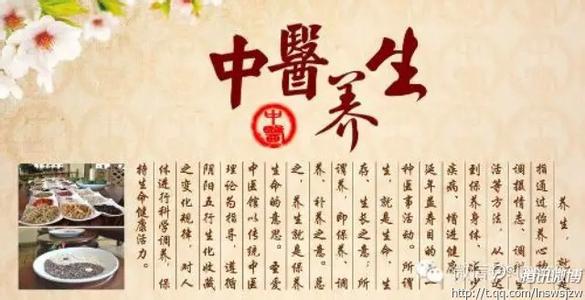 中醫养生
中醫
养生，就
指通过怡养心
调摄情志、调
活等方法，从
到保养身体、
疾病、增进健
延年益寿目的
种医事活动。所谓
生，就是生命、生
存、生长之意；所
谓养，即保养、调
养、补养之意。总
之，养生就是养
生命的意思。圣爱
中医馆以传统中医
理论为指导，遵循
阴阳五行生化收藏
之变化规律，对人
体进行科学调养，保
持生命健康活力。
腾讯微博
http://t.qq.com/lnswsjzw